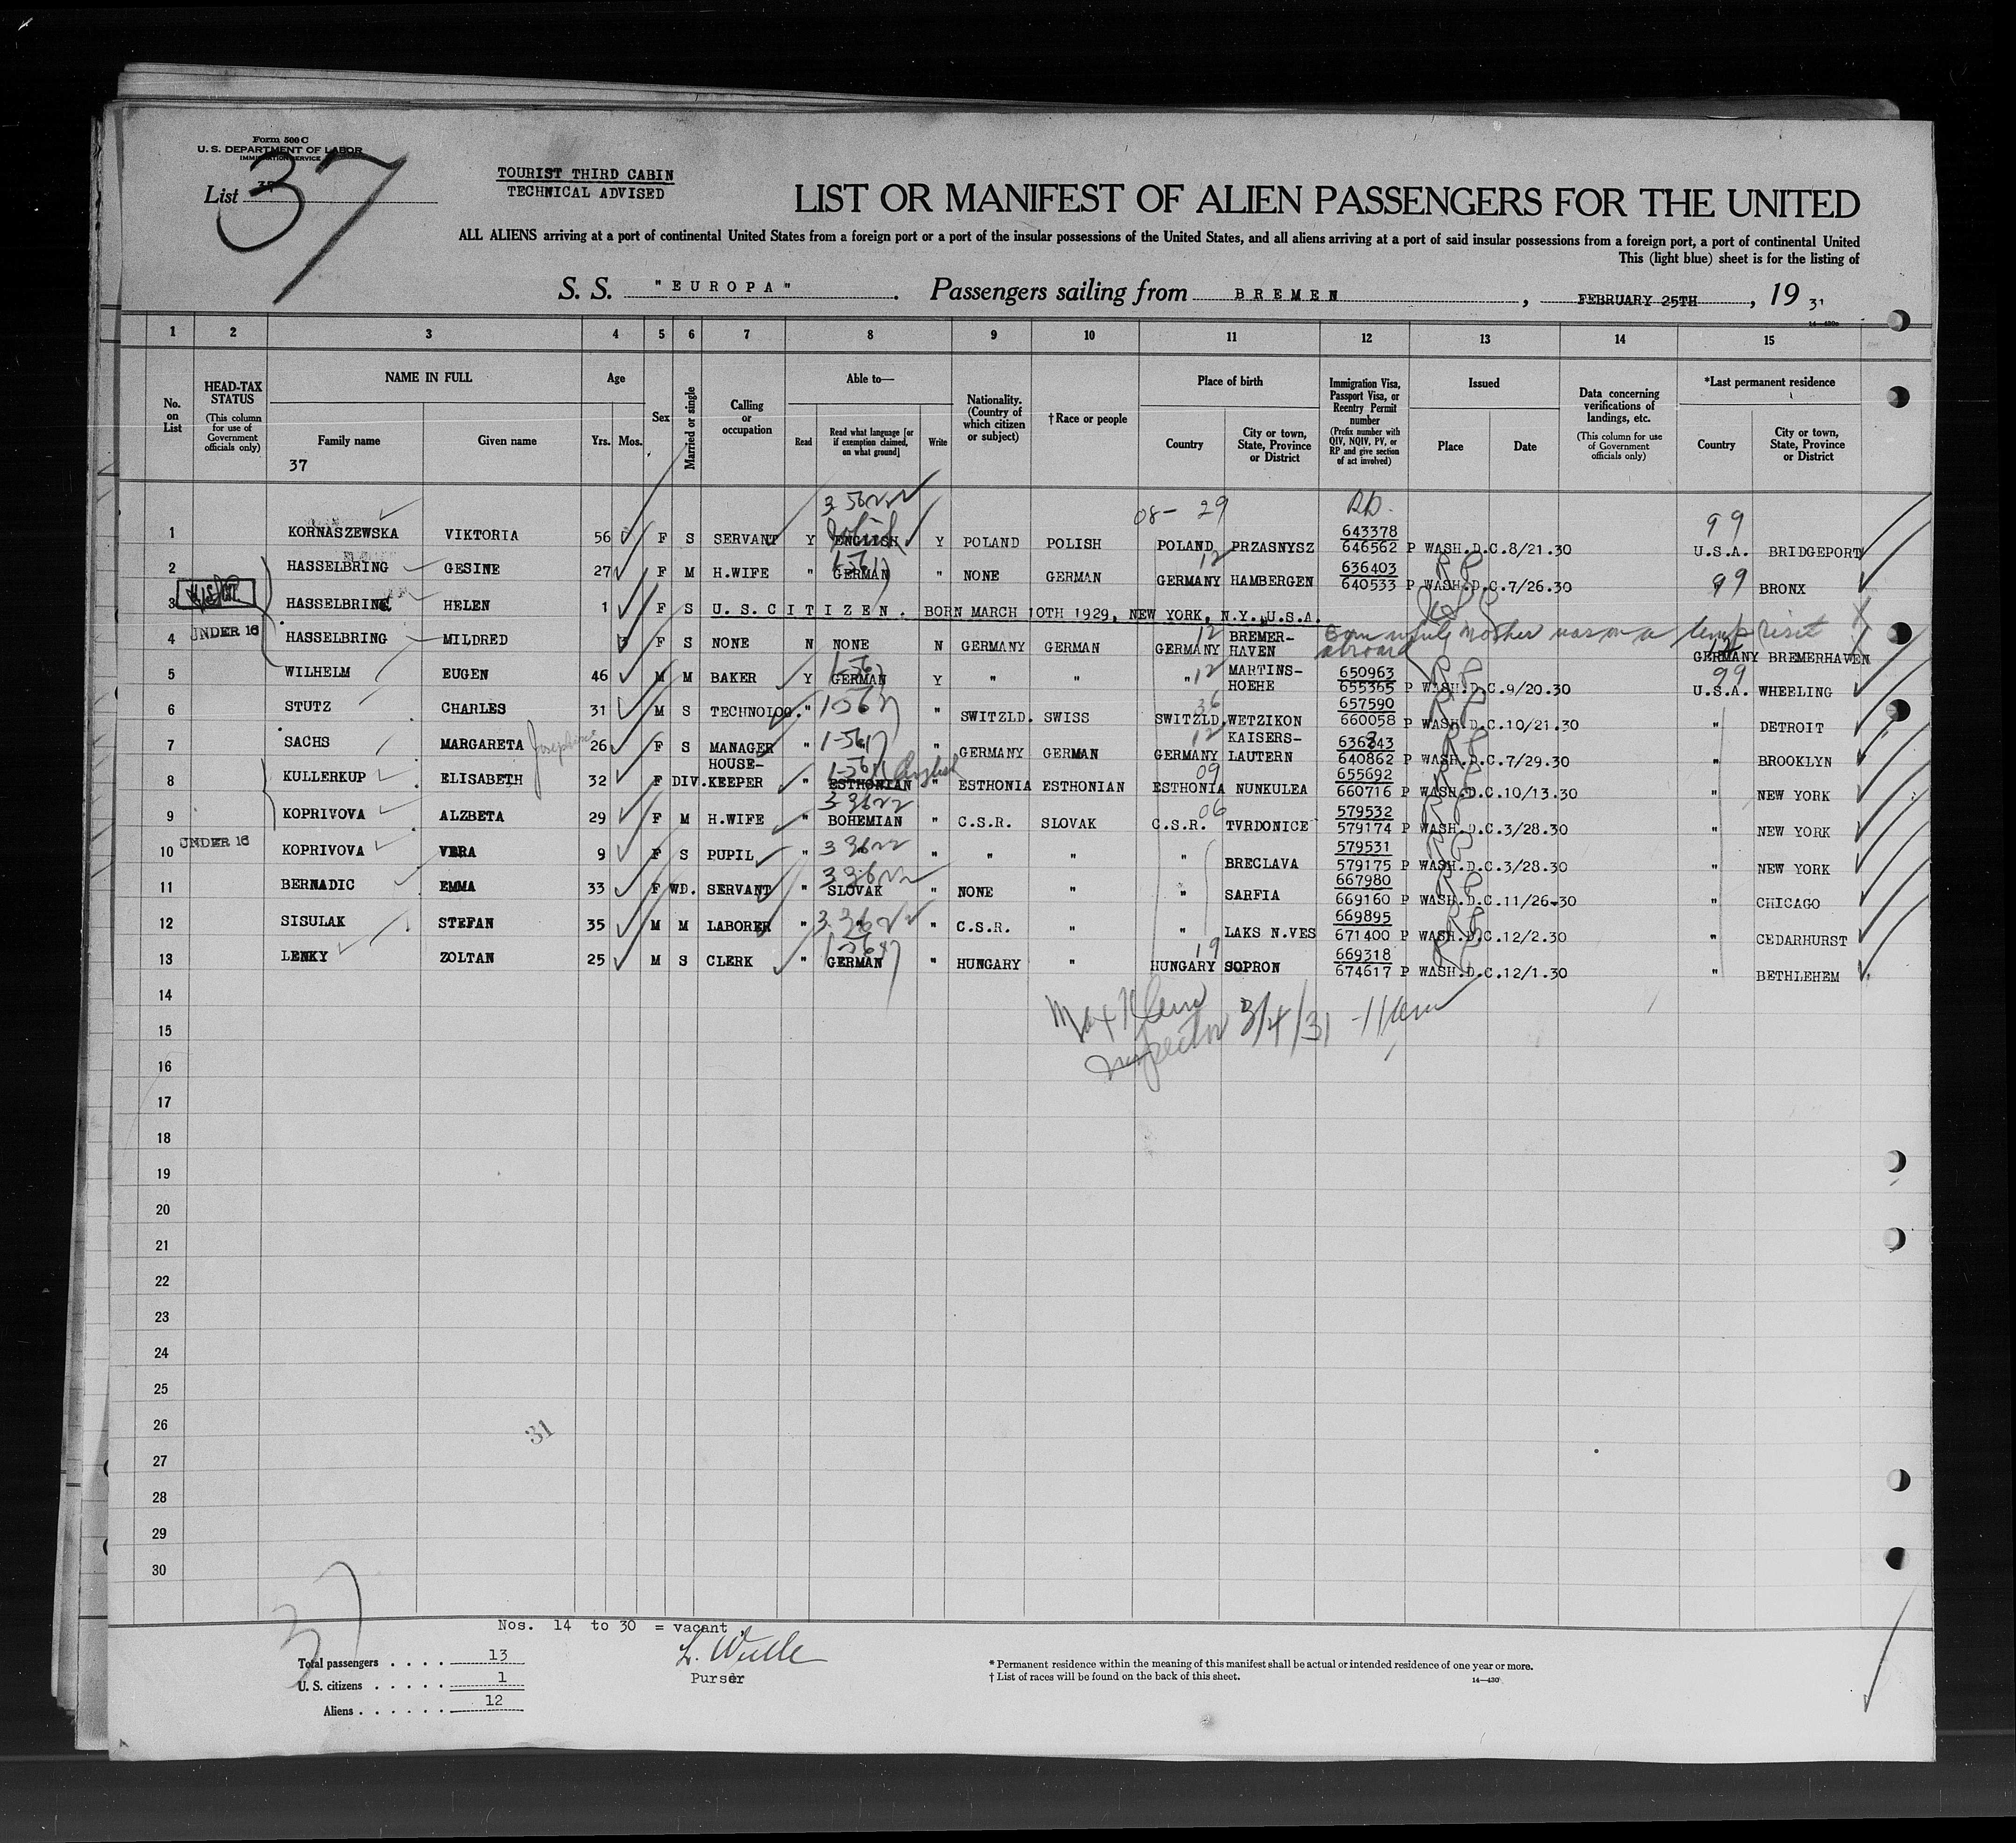 Form 500 C
U. S. DEPARTMENT OF LABOR
IMMIGRATION SERVICE
List 37
37
TOURIST THIRD CABIN
TECHNICAL ADVISED
LIST OR MANIFEST OF ALIEN PASSENGERS FOR THE UNITED
ALL ALIENS arriving at a port of continental United States from a foreign port or a port of the insular possessions of the United States, and all aliens arriving at a port of said insular possessions from a foreign port, a port of continental United
This (light blue) sheet is for the listing of
S. S. "EUROPA". Passengers sailing from BREMEN, FEBRUARY 25TH, 19 31
1 2 3 4 5 6 7 8 9 10 11 12 13 14 15
No. on List
HEAD-TAX STATUS (This column for use of Government officials only)
NAME IN FULL
Family name Given name
37
Age
Yrs. Mos.
Sex
Married or single
Calling or occupation
Able to—
Read Read what language [or if exemption claimed, on what ground] Write
Nationality. (Country of which citizen or subject)
†Race or people
Place of birth
Country City or town, State, Province or District
Immigration Visa, Passport Visa, or Reentry Permit number (Prefix number with QIV, NQIV, PV, or RP and give section of act involved)
Issued
Place Date
Data concerning verifications of landings, etc. (This column for use of Government officials only)
*Last permanent residence
Country City or town, State, Province or District
08- 29 99
1 KORNASZEWSKA VIKTORIA 56 F S SERVANT Y ENGLISH Polish Y POLAND POLISH POLAND PRZASNYSZ 643378 646562 P WASH.D.C.8/21.30 U.S.A. BRIDGEPORT
2 HASSELBRING GESINE 27 F M H.WIFE " GERMAN " NONE GERMAN 12 GERMANY HAMBERGEN 636403 640533 P WASH.D.C.7/26.30 99 BRONX
3 HASSELBRING HELEN 1 F S U.S.CITIZEN. BORN MARCH 10TH 1929, NEW YORK, N.Y.,U.S.A.
UNDER 16
4 HASSELBRING MILDRED 3 F S NONE N NONE N GERMANY GERMAN 12 GERMANY BREMER-HAVEN Born while mother was on a temp visit abroad GERMANY BREMERHAVEN
5 WILHELM EUGEN 46 M M BAKER Y GERMAN Y " " " 12 MARTINS-HOEHE 650963 655365 P WASH.D.C.9/20.30 99 U.S.A. WHEELING
6 STUTZ CHARLES 31 M S TECHNOLOG. " " SWITZLD. SWISS 36 SWITZLD. WETZIKON 657590 660058 P WASH.D.C.10/21.30 " DETROIT
7 SACHS MARGARETA Josephine 26 F S MANAGER " " GERMANY GERMAN 12 GERMANY KAISERS-LAUTERN 636843 640862 P WASH.D.C.7/29.30 " BROOKLYN
8 KULLERKUP ELISABETH 32 F DIV. HOUSE-KEEPER " ESTHONIAN English " ESTHONIA ESTHONIAN 09 ESTHONIA NUNKULEA 655692 660716 P WASH.D.C.10/13.30 " NEW YORK
9 KOPRIVOVA ALZBETA 29 F M H.WIFE " BOHEMIAN " C.S.R. SLOVAK 06 C.S.R. TVRDONICE 579532 579174 P WASH.D.C.3/28.30 " NEW YORK
UNDER 16
10 KOPRIVOVA VERA 9 F S PUPIL " " " " " BRECLAVA 579531 579175 P WASH.D.C.3/28.30 " NEW YORK
11 BERNADIC EMMA 33 F WD. SERVANT " SLOVAK " NONE " " SARFIA 667980 669160 P WASH.D.C.11/26.30 " CHICAGO
12 SISULAK STEFAN 35 M M LABORER " " " C.S.R. " " LAKS N.VES 669895 671400 P WASH.D.C.12/2.30 " CEDARHURST
13 LENKY ZOLTAN 25 M S CLERK " GERMAN " HUNGARY " 19 HUNGARY SOPRON 669318 674617 P WASH.D.C.12/1.30 " BETHLEHEM
14
Max Klein
15
Inspector 3/4/31 - 11am
16
17
18
19
20
21
22
23
24
25
26
31
27
28
29
30
37
Nos. 14 to 30 = vacant
Total passengers . . . . 13
U. S. citizens . . . . . 1
Aliens . . . . . . 12
Purser
* Permanent residence within the meaning of this manifest shall be actual or intended residence of one year or more.
† List of races will be found on the back of this sheet.
14—430